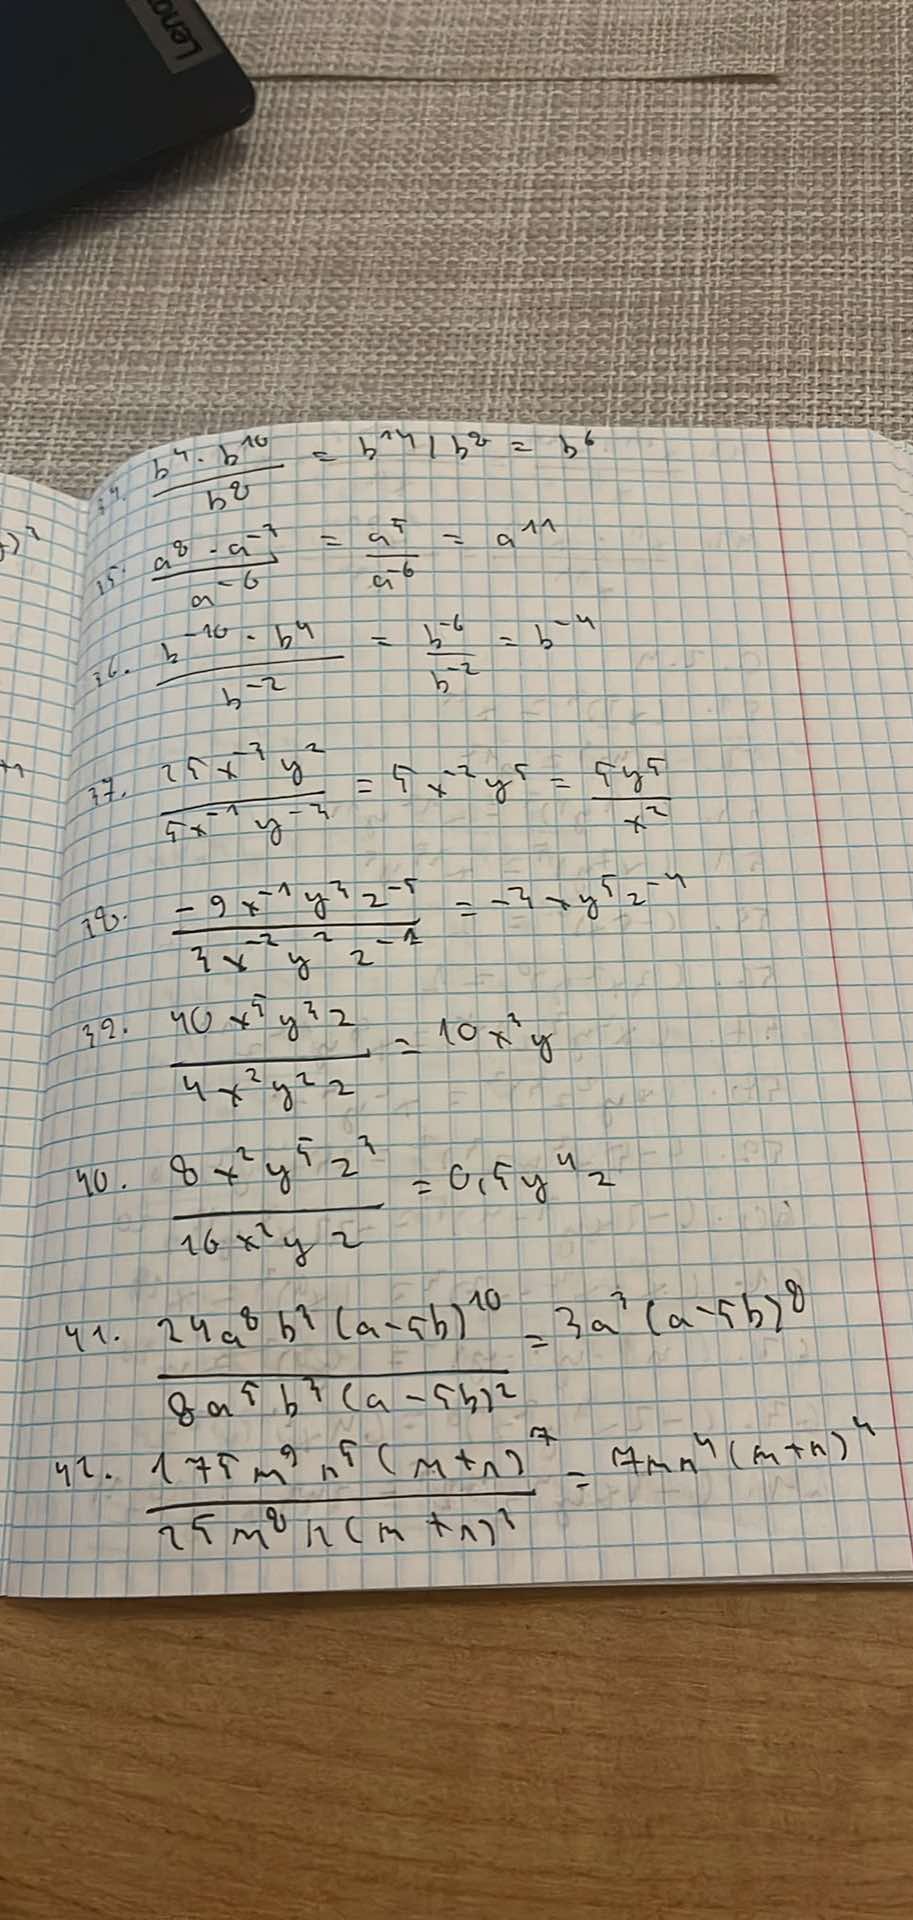 Leno
34. (b⁴ · b¹⁰)/b⁸ = b¹⁴ / b⁸ = b⁶
35. (a⁸ · a⁻³)/a⁻⁶ = a⁵/a⁻⁶ = a¹¹
36. (b⁻¹⁰ · b⁴)/b⁻² = b⁻⁶/b⁻² = b⁻⁴
37. (25x⁻³y²)/(5x⁻¹y⁻³) = 5x⁻²y⁵ = 5y⁵/x²
38. (-9x⁻¹y³z⁻⁵)/(3x⁻²y²z⁻¹) = -3xy⁵z⁻⁴
39. (40x⁵y³z)/(4x²y²z) = 10x³y
40. (8x²y⁵z³)/(16x²yz) = 0,5y⁴z
41. (24a⁸b³(a-5b)¹⁰)/(8a⁵b³(a-5b)²) = 3a³(a-5b)⁸
42. (175m⁹n⁵(m+n)⁷)/(25m⁸n(m+n)³) = 7mn⁴(m+n)⁴